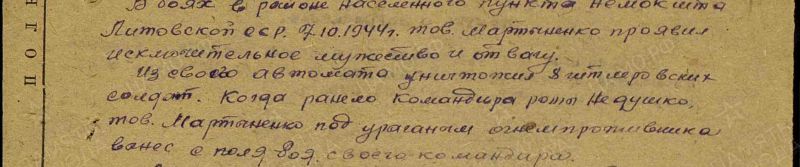 В боях в районе населенного пункта Немокшта
Литовской ССР. 7.10.1944г. тов. Мартыненко проявил
исключительное мужество и отвагу.
Из своего автомата уничтожил 8 гитлеровских
солдат. Когда ранело командира роты Недушко,
тов. Мартыненко под ураганым огнем противника
вынес с поля боя своего командира.